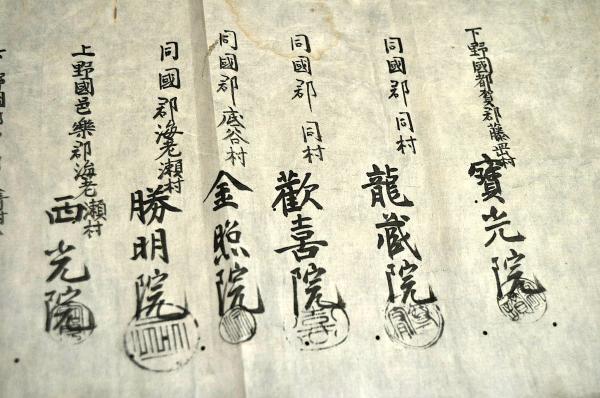 下野國都賀郡藤岡村
寶光院
同國郡同村
龍蔵院
同國郡同村
歡喜院
同國郡底谷村
金照院
同國郡海老瀬村
勝明院
上野國邑樂郡海老瀬村
西光院